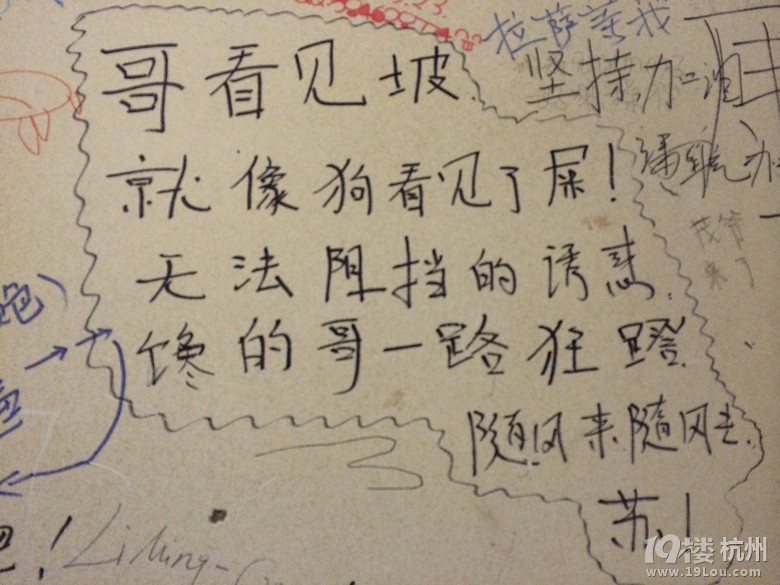 拉萨等我
哥看见坡
坚持加油
就像狗看见了屎!
无法阻挡的诱惑
馋的哥一路狂蹬
随风来随风去.
苏!
吧!
LiMing-
19楼杭州
www.19Lou.com